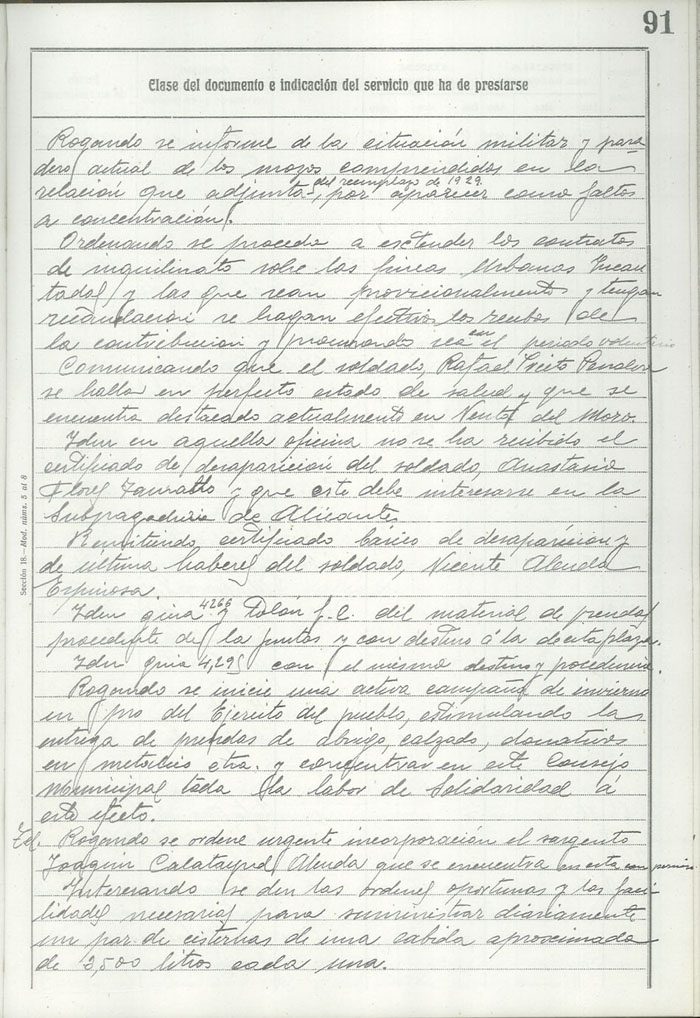 91
Clase del documento e indicación del servicio que ha de prestarse
Rogando se informe de la situación militar y para
dero actual de los mozos comprendidos en la
relación que adjunta del reemplazo de 1929, por aparecer como faltos
a concentración.
Ordenando se proceda a esctender los contratos
de inquilinato sobre las fincas Urbanas Incau
tadas y las que sean provicionalmente y tengan
recaudación se hagan efectivos los recibos de
la contribución y procurando sea en el periodo voluntario
Comunicando que el soldado, Rafael Prieto Penalva
se halla en perfecto estado de salud y que se
encuentra destacado actualmente en Venta del Moro.
Idem en aquella oficina no se ha recibido el
certificado de desaparición del soldado, Anastasio
Flores y que este debe interesarse en la
Subpagaduria de Alicante.
Remitiendo certificado básico de desaparición y
de última haberes del soldado, Vicente Alenda
Espinosa.
Idem guia 4266 y Talón f.c. del material de prendas
procedente de la Juntas y con destino á la de esta plaza.
Idem guia 4,295 con el mismo destino y procedencia.
Rogando se inicie una activa campaña de invierno
en pro del Ejercito del pueblo, estimulando la
entrega de prendas de abrigo, calzado, donativos
en metalico etra. y concentrar en este Consejo
Municipal toda la labor de Solidaridad á
este efecto.
Tel. Rogando se ordene urgente incorporación el sargento
Joaquin Calatayud Alenda que se encuentra en esta con permiso.
Interesando se den las ordenes oportunas y las faci-
lidades necesarias para suministrar diariamente
un par de cisternas de una cabida aproximada
de 2,500 litros cada una.
Sección 18.—Mod. núms. 5 al 8